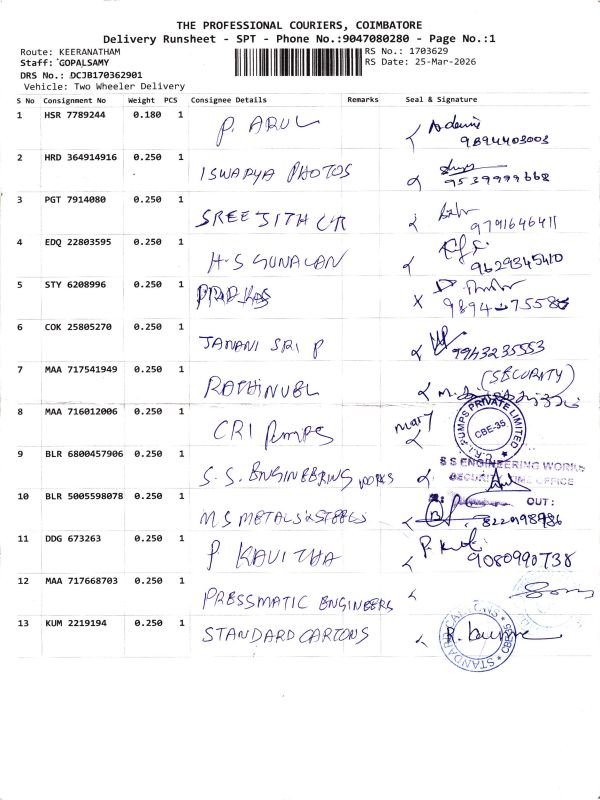 THE PROFESSIONAL COURIERS, COIMBATORE
Delivery Runsheet - SPT - Phone No.:9047080280 - Page No.:1
Route: KEERANATHAM
RS No.: 1703629
Staff: GOPALSAMY
RS Date: 25-Mar-2026
DRS No.: DCJB170362901
Vehicle: Two Wheeler Delivery
S No Consignment No Weight PCS Consignee Details Remarks Seal & Signature
1 HSR 7789244 0.180 1 P. ARUL
9894403003
2 HRD 364914916 0.250 1 ISWARYA PHOTOS
9539999668
3 PGT 7914080 0.250 1 SREEJITH
9791646411
4 EDQ 22803595 0.250 1 H-S GUNALAN
9629345410
5 STY 6208996 0.250 1
6 COK 25805270 0.250 1 JANANI SRI P
9943235553
7 MAA 717541949 0.250 1 RATHINVEL
(SECURITY)
8 MAA 716012006 0.250 1 CRI Pumps
mary
C.R.I. PUMPS PRIVATE LIMITED
CBE-35
9 BLR 6800457906 0.250 1 S.S. ENGINEERING WORKS
S S ENGINEERING WORKS
SECURITY TIME OFFICE
OUT :
10 BLR 5005598078 0.250 1 M S METALS & STEELS
11 DDG 673263 0.250 1 P KAVITHA
9080990738
12 MAA 717668703 0.250 1 PRESSMATIC ENGINEERS
13 KUM 2219194 0.250 1 STANDARD CARTONS
STANDARD CARTONS
CBE-35